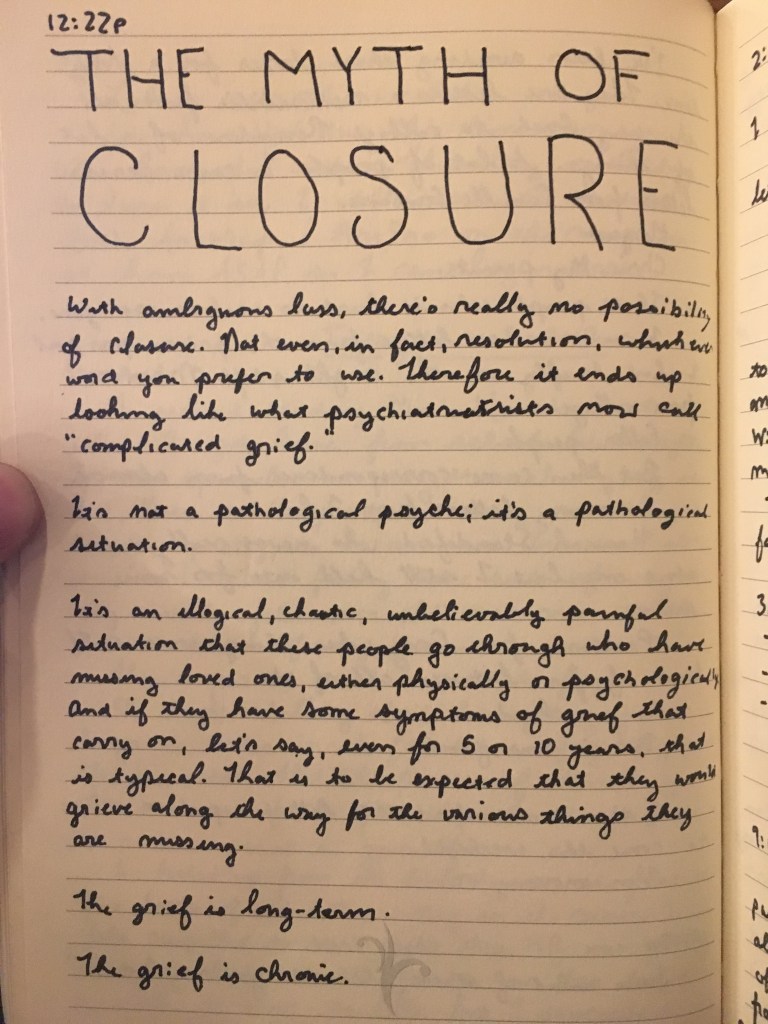 12:22p
THE MYTH OF
CLOSURE
With ambiguous loss, there's really no possibility
of closure. Not even, in fact, resolution, whichever
word you prefer to use. Therefore it ends up
looking like what now call
"complicated grief."
It's not a pathological psyche; it's a pathological
situation.
It's an illogical, chaotic, unbelievably painful
situation that these people go through who have
missing loved ones, either physically or psychologically
And if they have some symptoms of grief that
carry on, let's say, even for 5 or 10 years, that
is typical. That is to be expected that they would
grieve along the way for the various things they
are missing.
The grief is long-term.
The grief is chronic.
2:
1
to
3
9: